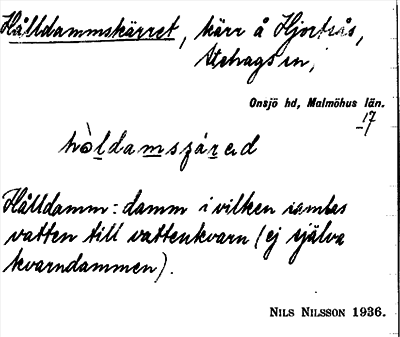 Hålldammskärret, kärr å Hjortrås,
Stehags sn,
Onsjö hd, Malmöhus län.
17
hòldamsɟárəd
Hålldamm: damm i vilken samlas
vatten till vattenkvarn (ej själva
kvarndammen).
NILS NILSSON 1936.